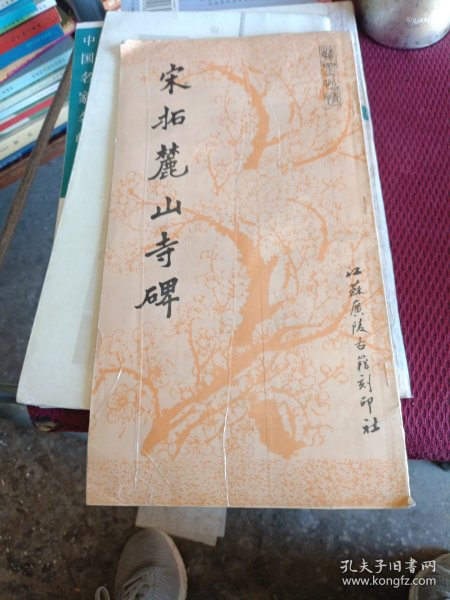 宋拓麓山寺碑
江蘇廣陵古籍刻印社
中国名家
孔夫子旧书网
www.kongfz.com